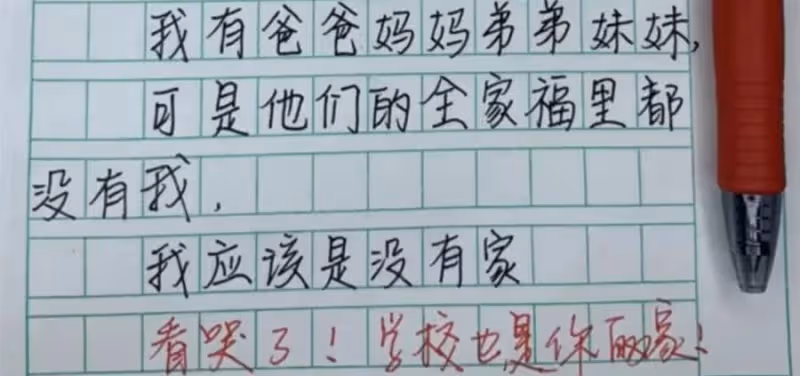 我有爸爸妈妈弟弟妹妹，
可是他们的全家福里都
没有我，
我应该是没有家
看哭了！学校也是你的家！